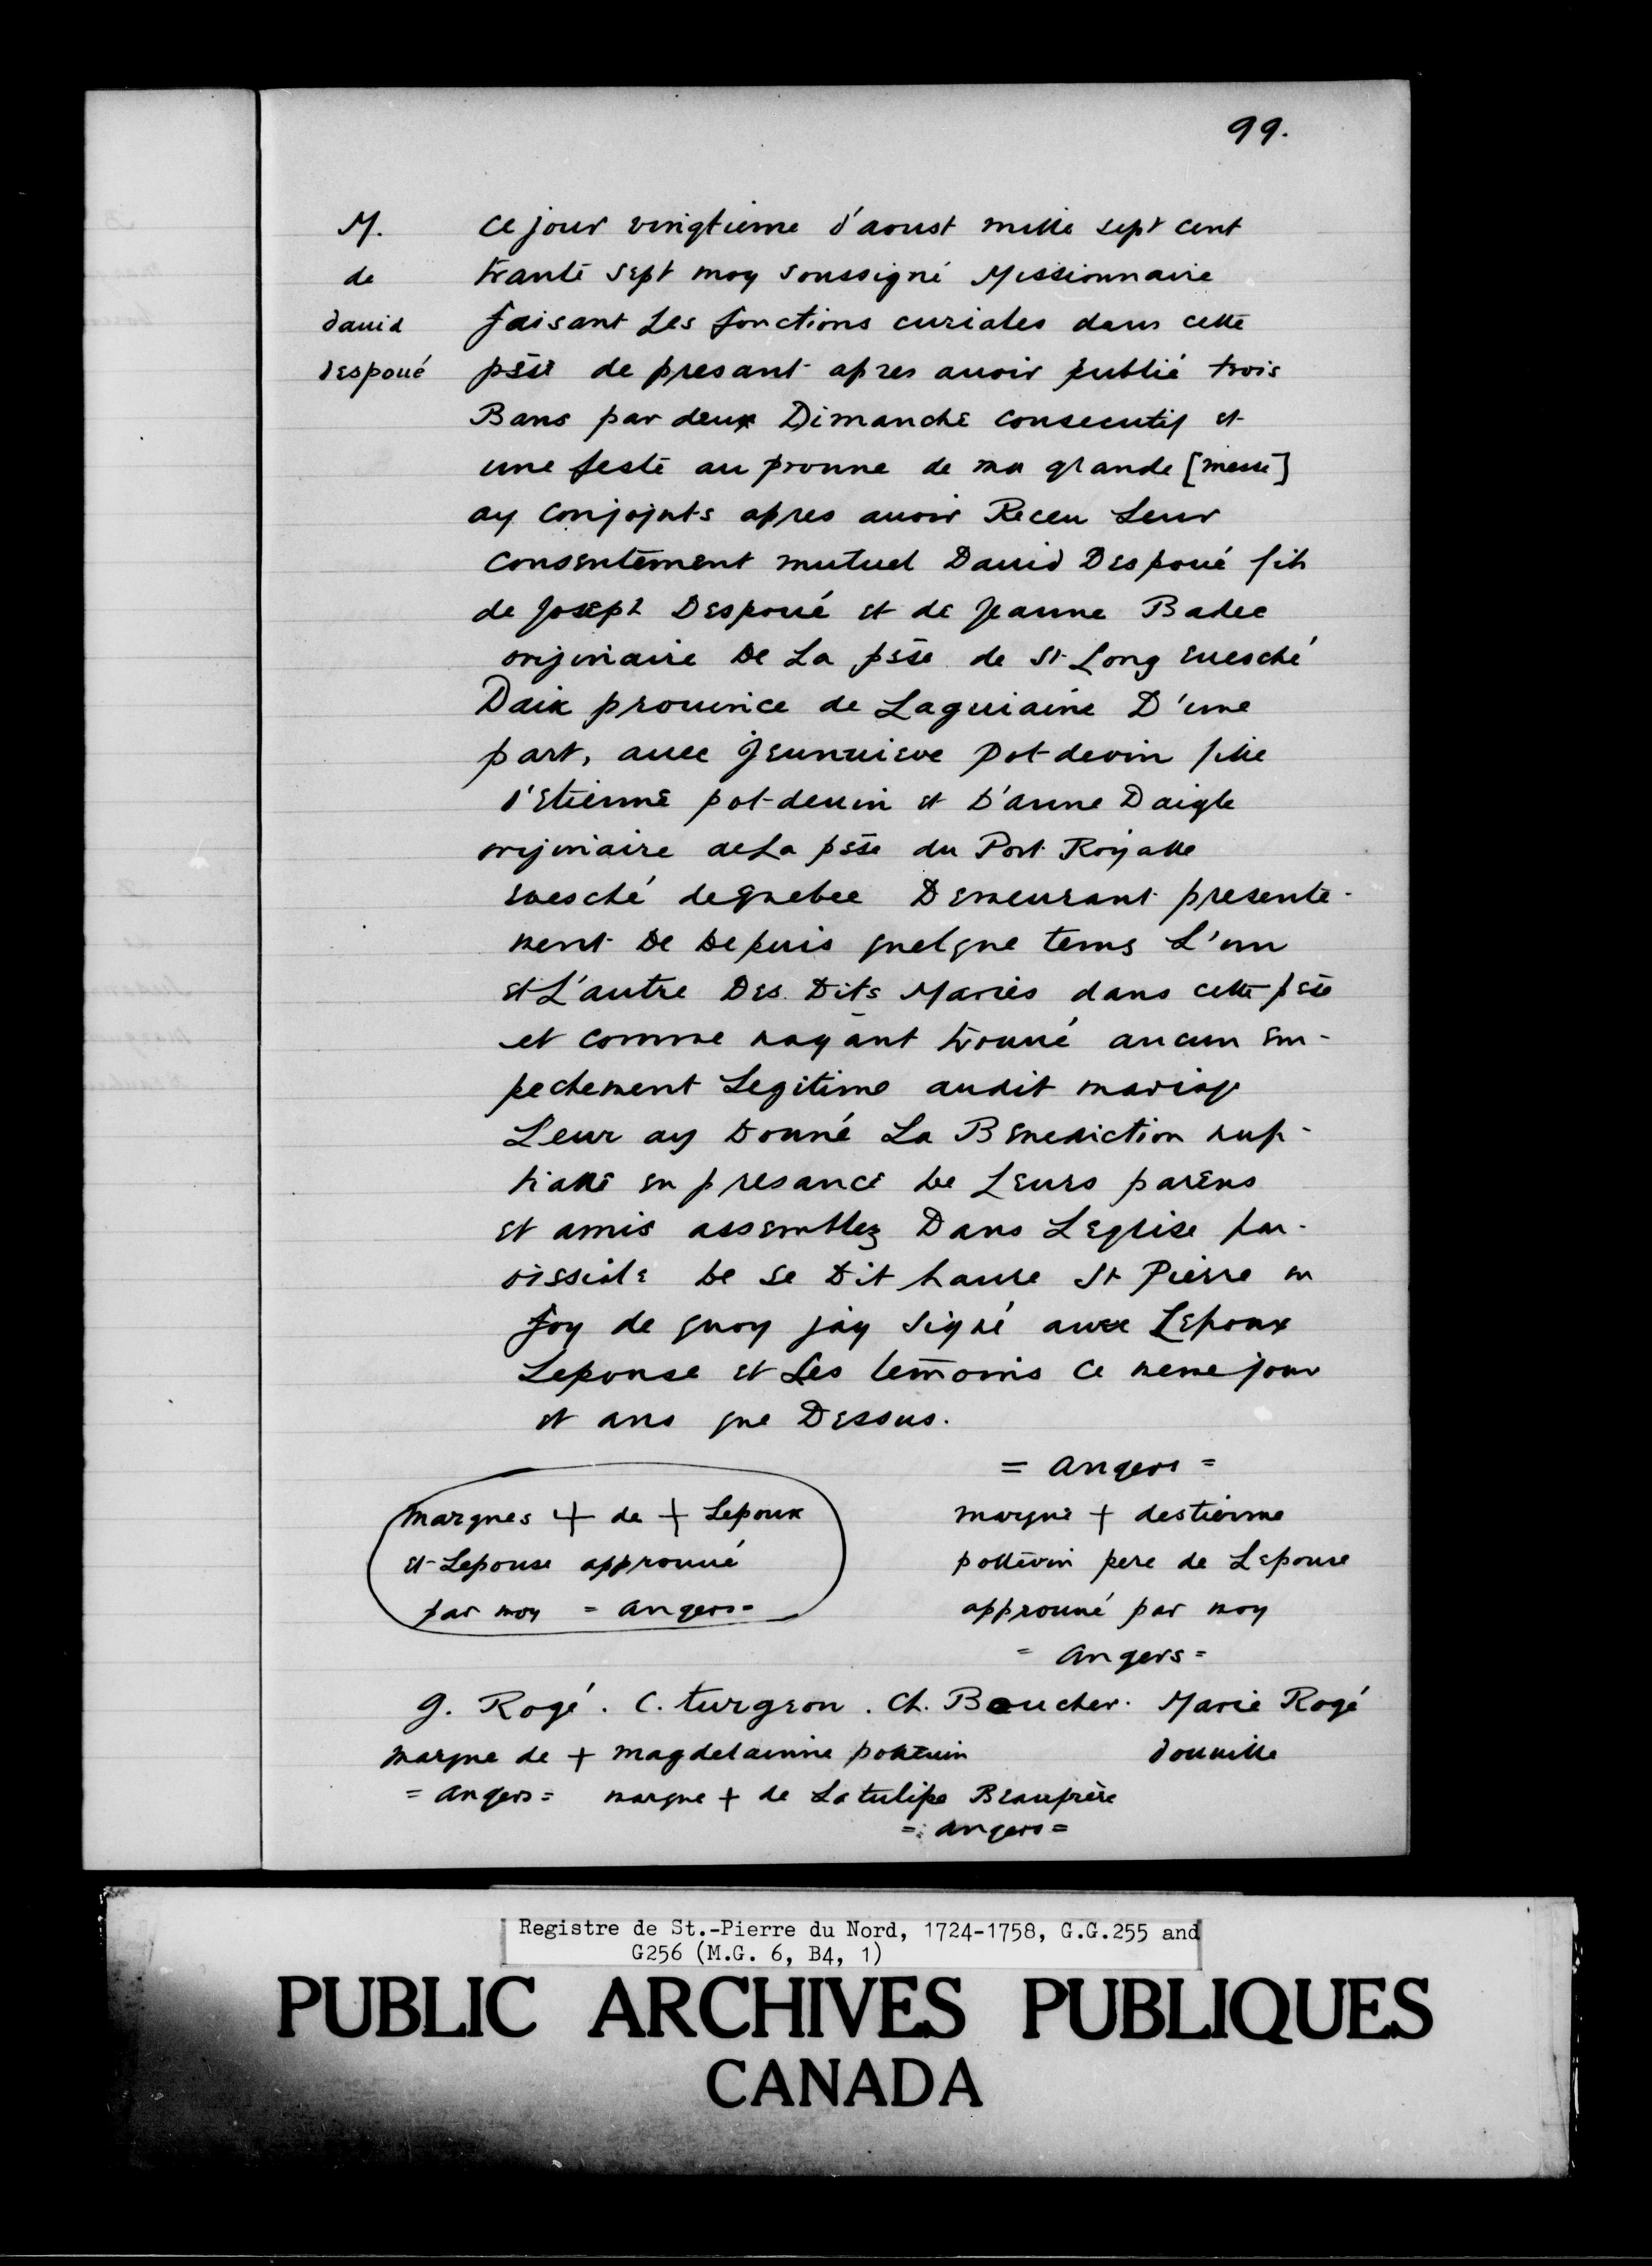 99.
M.
de
david
despoué
Ce jour vingtieme d'aoust mille sept cent
trante sept moy soussigné Missionnaire
faisant Les fonctions curiales dans cette
psse de presant apres auoir publié trois
Bans par deux Dimanche consecutif et
une feste au pronne de ma grande [messe]
ay conjojnts apres auoir Receu Leur
consentement mutuel Dauid Despoué fils
de Joseph Despoué et de Jeanne Badec
orijinaire De La psse de St Long euesché
Daix prouince de Laguiaine D'une
part, auec Jeunuieve Pot-devin fille
d'Etienne pot-deuin et D'anne Daigle
orijinaire deLa psse du Port Royalle
euesché dequebec Demeurant presente-
ment De Depuis quelque tems L'un
et L'autre Des Dits Mariés dans cette psse
et comme nayant trouué aucun em-
pechement Legitime audit mariage
Leur ay Donné La Benediction nup-
tialle en presance De Leurs parens
et amis assemblez Dans Leglise par-
oissiale De se Dit haure St Pierre en
foy de quoy jay signé auec Lepoux
Lepouse et Les temoins Ce meme jour
et ans que Dessus.
= angers =
marques + de + Lepoux
et Lepouse approuué
par moy = angers =
marque + destienne
pottevin pere de Lepouse
approuué par moy
= angers =
g. Rogé. C. turgeon. Ch. Boucher. Marie Rogé
marque de + magdelainne pottuin douuille
= angers = marque + de La tulipe Beaufrère
= angers =
Registre de St.-Pierre du Nord, 1724-1758, G.G.255 and
G256 (M.G. 6, B4, 1)
PUBLIC ARCHIVES PUBLIQUES
CANADA